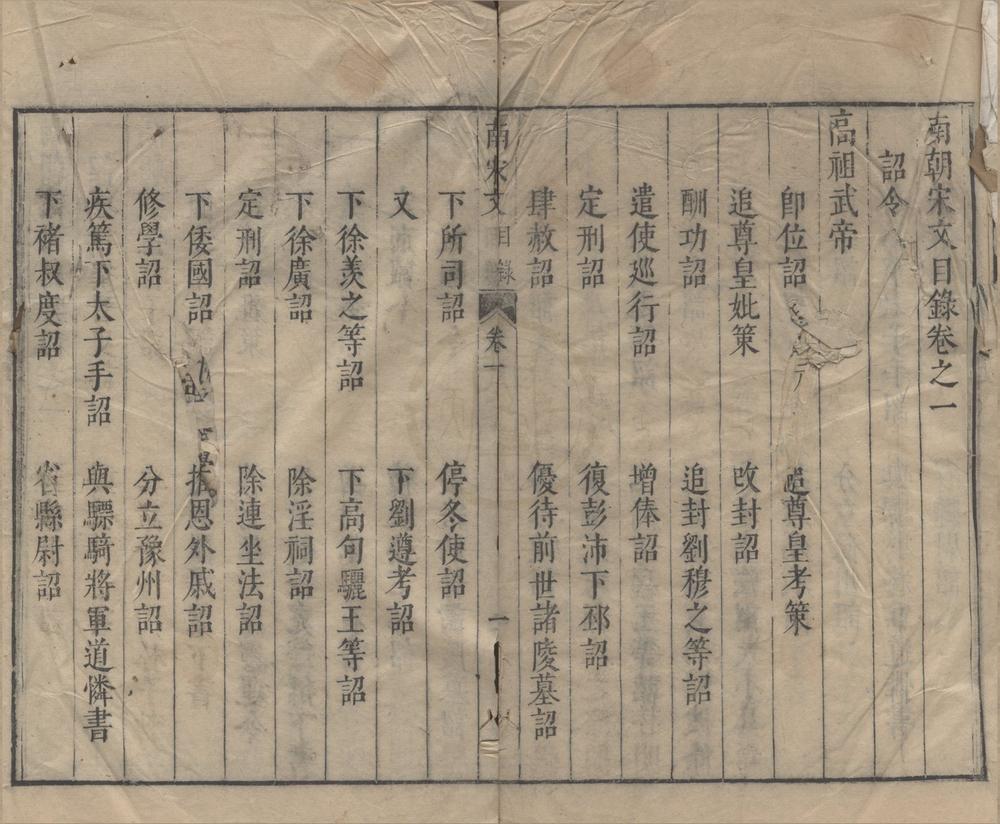 南朝宋文目錄卷之一
詔令
高祖武帝
即位詔　追尊皇考策
追尊皇妣策　改封詔
酬功詔　追封劉穆之等詔
遣使巡行詔　增俸詔
定刑詔　復彭沛下邳詔
肆赦詔　優待前世諸陵墓詔
南宋文　目錄　卷一　一
下所司詔　停冬使詔
又　下劉遵考詔
下徐羨之等詔　下高句驪王等詔
下徐廣詔　除淫祠詔
定刑詔　除連坐法詔
下倭國詔　推恩外戚詔
修學詔　分立豫州詔
疾篤下太子手詔　與驃騎將軍道憐書
下褚叔度詔　省縣尉詔